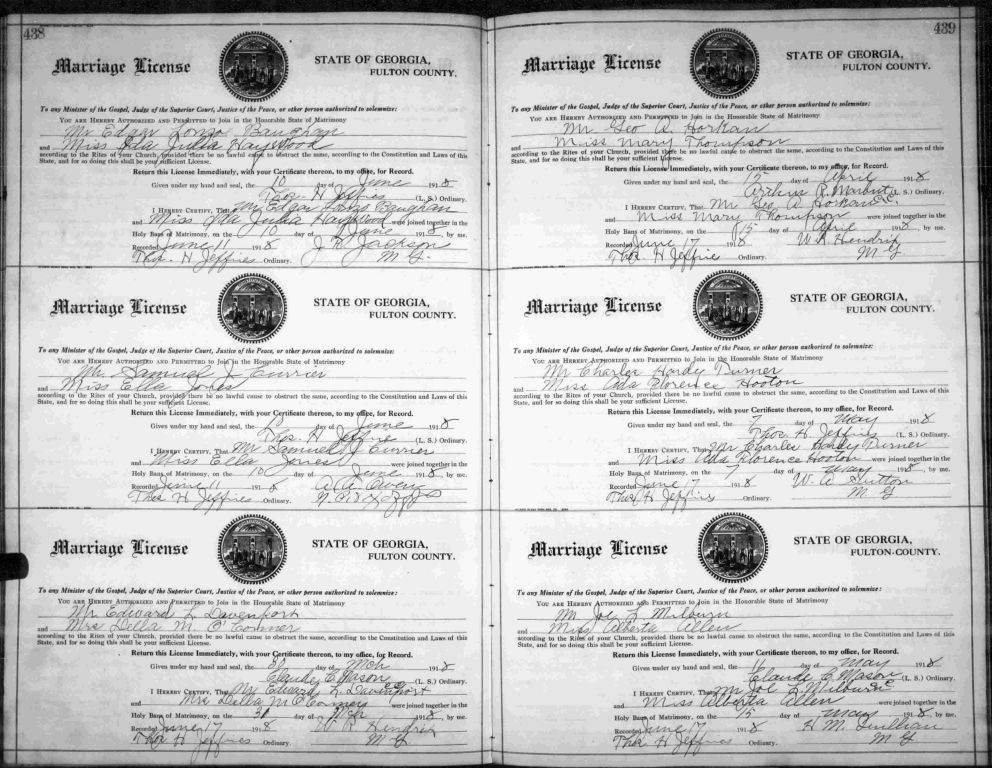 438
Marriage License
STATE OF GEORGIA,
FULTON COUNTY.
To any Minister of the Gospel, Judge of the Superior Court, Justice of the Peace, or other person authorized to solemnize:
YOU ARE HEREBY AUTHORIZED AND PERMITTED to Join in the Honorable State of Matrimony
Mr Edgar Lonzo Baughan
and Miss Ida Julia Haywood
according to the Rites of your Church, provided there be no lawful cause to obstruct the same, according to the Constitution and Laws of this
State, and for so doing this shall be your sufficient License.
Return this License Immediately, with your Certificate thereon, to my office, for Record.
Given under my hand and seal, the 10 day of June 1918
Thos. H Jeffries (L. S.) Ordinary.
I HEREBY CERTIFY, That Mr Edgar Lonzo Baughan
and Miss Ida Julia Haywood were joined together in the
Holy Bans of Matrimony, on the 10 day of June 1918, by me.
Recorded June 11 1918 J. R. Jackson
Thos. H Jeffries Ordinary. M G.
Marriage License
STATE OF GEORGIA,
FULTON COUNTY.
To any Minister of the Gospel, Judge of the Superior Court, Justice of the Peace, or other person authorized to solemnize:
YOU ARE HEREBY AUTHORIZED AND PERMITTED to Join in the Honorable State of Matrimony
Mr. Samuel J. Currier
and Miss Ella Jones
according to the Rites of your Church, provided there be no lawful cause to obstruct the same, according to the Constitution and Laws of this
State, and for so doing this shall be your sufficient License.
Return this License Immediately, with your Certificate thereon, to my office, for Record.
Given under my hand and seal, the 10 day of June 1918
Thos. H Jeffries (L. S.) Ordinary.
I HEREBY CERTIFY, That Mr Samuel J Currier
and Miss Ella Jones were joined together in the
Holy Bans of Matrimony, on the 10 day of June 1918, by me.
Recorded June 11 1918
Thos H Jeffries Ordinary.
Marriage License
STATE OF GEORGIA,
FULTON COUNTY.
To any Minister of the Gospel, Judge of the Superior Court, Justice of the Peace, or other person authorized to solemnize:
YOU ARE HEREBY AUTHORIZED AND PERMITTED to Join in the Honorable State of Matrimony
Mr Edward L Davenport
and Mrs Della M. O'Conner
according to the Rites of your Church, provided there be no lawful cause to obstruct the same, according to the Constitution and Laws of this
State, and for so doing this shall be your sufficient License.
Return this License Immediately, with your Certificate thereon, to my office, for Record.
Given under my hand and seal, the day of Mch 1918
Claude C Mason (L. S.) Ordinary.
I HEREBY CERTIFY, That Mr Edward L Davenport
and Mrs Della M O'Conner were joined together in the
Holy Bans of Matrimony, on the day of Mch 1918, by me.
Recorded June 17 1918 W. R. Hendrix
Thos H Jeffries Ordinary. M G
439
Marriage License
STATE OF GEORGIA,
FULTON COUNTY.
To any Minister of the Gospel, Judge of the Superior Court, Justice of the Peace, or other person authorized to solemnize:
YOU ARE HEREBY AUTHORIZED AND PERMITTED to Join in the Honorable State of Matrimony
Mr Geo A. Horkan
and Miss Mary Thompson
according to the Rites of your Church, provided there be no lawful cause to obstruct the same, according to the Constitution and Laws of this
State, and for so doing this shall be your sufficient License.
Return this License Immediately, with your Certificate thereon, to my office, for Record.
Given under my hand and seal, the 15 day of April 1918
Arthur R (L. S.) Ordinary.
I HEREBY CERTIFY, That Mr Geo A Horkan
and Miss Mary Thompson were joined together in the
Holy Bans of Matrimony, on the 15 day of April 1918, by me.
Recorded June 17 1918 W. R. Hendrix
Thos H Jeffries Ordinary. M G
Marriage License
STATE OF GEORGIA,
FULTON COUNTY.
To any Minister of the Gospel, Judge of the Superior Court, Justice of the Peace, or other person authorized to solemnize:
YOU ARE HEREBY AUTHORIZED AND PERMITTED to Join in the Honorable State of Matrimony
Mr Charles Hardy Turner
and Miss Ada Florence Hooton
according to the Rites of your Church, provided there be no lawful cause to obstruct the same, according to the Constitution and Laws of this
State, and for so doing this shall be your sufficient License.
Return this License Immediately, with your Certificate thereon, to my office, for Record.
Given under my hand and seal, the 7 day of May 1918
Thos. H. Jeffries (L. S.) Ordinary.
I HEREBY CERTIFY, That Mr Charles Hardy Turner
and Miss Ada Florence Hooton were joined together in the
Holy Bans of Matrimony, on the 7 day of May 1918, by me.
Recorded June 17 1918 W. A Sutton
Thos H Jeffries Ordinary. M G
Marriage License
STATE OF GEORGIA,
FULTON COUNTY.
To any Minister of the Gospel, Judge of the Superior Court, Justice of the Peace, or other person authorized to solemnize:
YOU ARE HEREBY AUTHORIZED AND PERMITTED to Join in the Honorable State of Matrimony
Mr Joe L Milburn
and Miss Alberta Allen
according to the Rites of your Church, provided there be no lawful cause to obstruct the same, according to the Constitution and Laws of this
State, and for so doing this shall be your sufficient License.
Return this License Immediately, with your Certificate thereon, to my office, for Record.
Given under my hand and seal, the 11 day of May 1918
Claude C Mason (L. S.) Ordinary.
I HEREBY CERTIFY, That Mr Joe L Milburn
and Miss Alberta Allen were joined together in the
Holy Bans of Matrimony, on the 15 day of May 1918, by me.
Recorded June 17 1918 H. M.
Thos H Jeffries Ordinary. M G